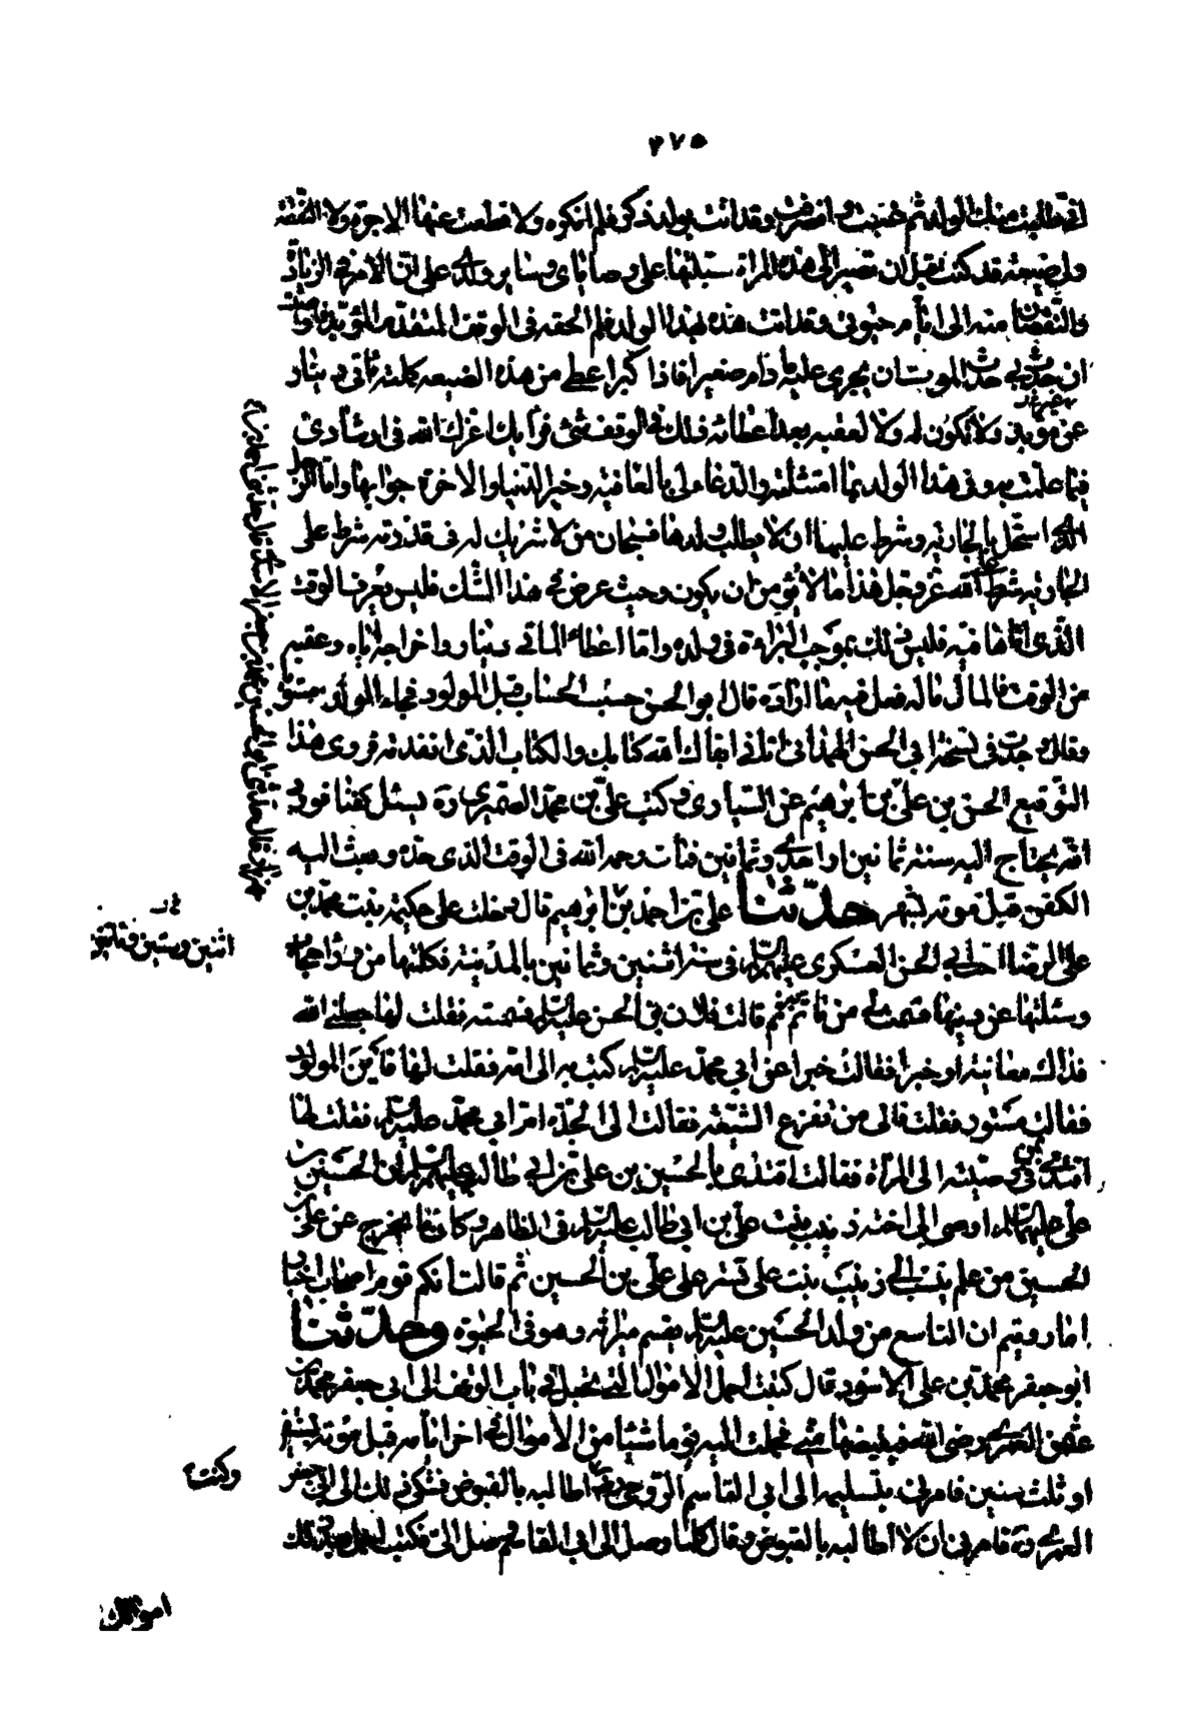 ٢٧٥
انى طلبت منك الولد ثم غيبت وانصرفت وقد اتت بولد ذكر فلم انكره ولا قطعت عنها الاجراء والنفقة
ولى ضيعة قد كنت قبل ان تصير الى هذه المراة سبلتها على وصاياى وعلى ساير ولدى على ان الامر فى الزيادة
والنقصان منه الى ايام حيوتى وقد اتت هذه بهذا الولد فلم الحقه فى الوقف المتقدم المؤبد واوصيت
ان حدث بى حدث الموت ان يجرى عليه ما دام صغيرا فاذا كبر اعطى من هذه الضيعة جملة مأتى دينار
غير مؤبد ولا يكون له ولا لعقبه بعد اعطائه ذلك فى الوقف شئ فرأيك اعزك الله فى ارشادى
فيما عملته وفى هذا الولد بما امتثله والدعاء لى بالعافية وخير الدنيا والاخرة جوابها واما الرجل
الذى استحل بالجارية وشرط عليها ان لا يطلب ولدها فسبحان من لا شريك له فى قدرته شرط على
الجارية شرط على الله عز وجل هذا ما لا يؤمن ان يكون وحيث عرض فى هذا الشك فليس يعرف الوقت
الذى اتاها فيه فليس ذلك بموجب البراءة فى ولده واما اعطاء المأتى دينار واخراجه اياه وعقبه
من الوقف فالمال ماله فعل فيه ما اراده قال ابو الحسن حسب الحساب قبل المولود فجاء المولود مستو
وقال وجدت فى نسخة ابى الحسن الهمدانى اتانى ابقاك الله كتابك والكتاب الذى انفذته فروى هذا
التوقيع الحسن بن على بن ابرهيم عن السيارى وكتب على بن محمد الصيمرى ره يسئل كفنا فورد
انه يحتاج اليه سنة ثمانين او احدى وثمانين فمات رحمه الله فى الوقت الذى حده وبعث اليه
الكفن قبل موته بشهر حدثنا على بن احمد بن ابرهيم قال دخلت على حكيمة بنت محمد بن
على الرضا اخت ابى الحسن العسكرى عليهم السلام فى سنة اثنين وثمانين بالمدينة فكلمتها من وراء حجاب
وسئلتها عن دينها فسمت لى من تاتم بهم ثم قالت فلان بن الحسن عليه السلام فسمته فقلت لها جعلنى الله
فداك معاينة او خبرا فقالت خبرا عن ابى محمد عليه السلام كتب به الى امه فقلت لها فاين المولود
فقالت مستور فقلت فالى من تفزع الشيعة فقالت الى الجدة ام ابى محمد عليه السلام فقلت لها
اقتدى بمن فى وصيته الى المرأة فقالت اقتدى بالحسين بن على بن ابى طالب عليهم السلام ان الحسين بن
على عليهما السلام اوصى الى اخته زينب بنت على بن ابى طالب عليه السلام فى الظاهر وكان ما يخرج عن على بن
الحسين من علم ينسب الى زينب بنت على تسترا على على بن الحسين ثم قالت انكم قوم اصحاب اخبار
اما رويتم ان التاسع من ولد الحسين عليه السلام يقسم ميراثه وهو فى الحيوة وحدثنا
ابو جعفر محمد بن على الاسود قال كنت احمل الاموال التى تجعل فى باب الوقف الى ابى جعفر محمد بن
عثمن العمرى رضى الله فيقبضها منى فحملت اليه يوما شيئا من الاموال فى اخر ايامه قبل موته بسنتين
او ثلث سنين فامرنى بتسليمه الى ابى القاسم الروحى رضه وكنت اطالبه بالقبوض فشكى ذلك الى ابى جعفر
العمرى ره فامرنى ان لا اطالبه بالقبوض وقال كلما وصل الى ابى القاسم وصل الى فكنت احمل بعد ذلك
اثنين وستين ومأتين
وكنت
اموالك